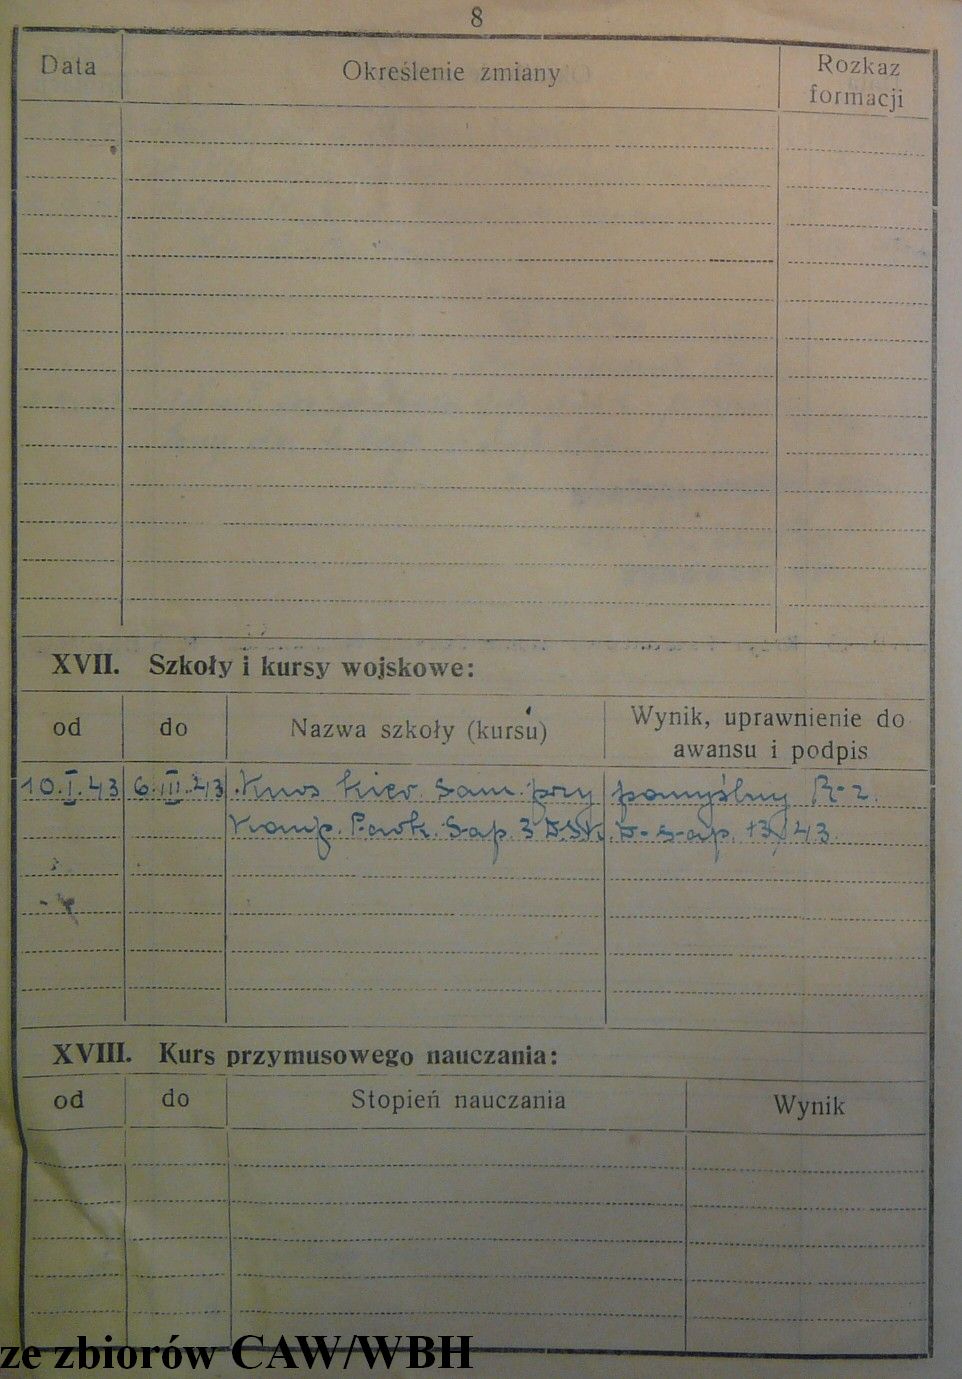 8
Data Określenie zmiany Rozkaz
formacji
XVII. Szkoły i kursy wojskowe:
od do Nazwa szkoły (kursu) Wynik, uprawnienie do
awansu i podpis
10.I.43 6.III.43 Kurs kier. sam. przy pomyślny R-z.
Komp. Park. Sap. 3 DSK. D-sap. 13/43.
XVIII. Kurs przymusowego nauczania:
od do Stopień nauczania Wynik
ze zbiorów CAW/WBH